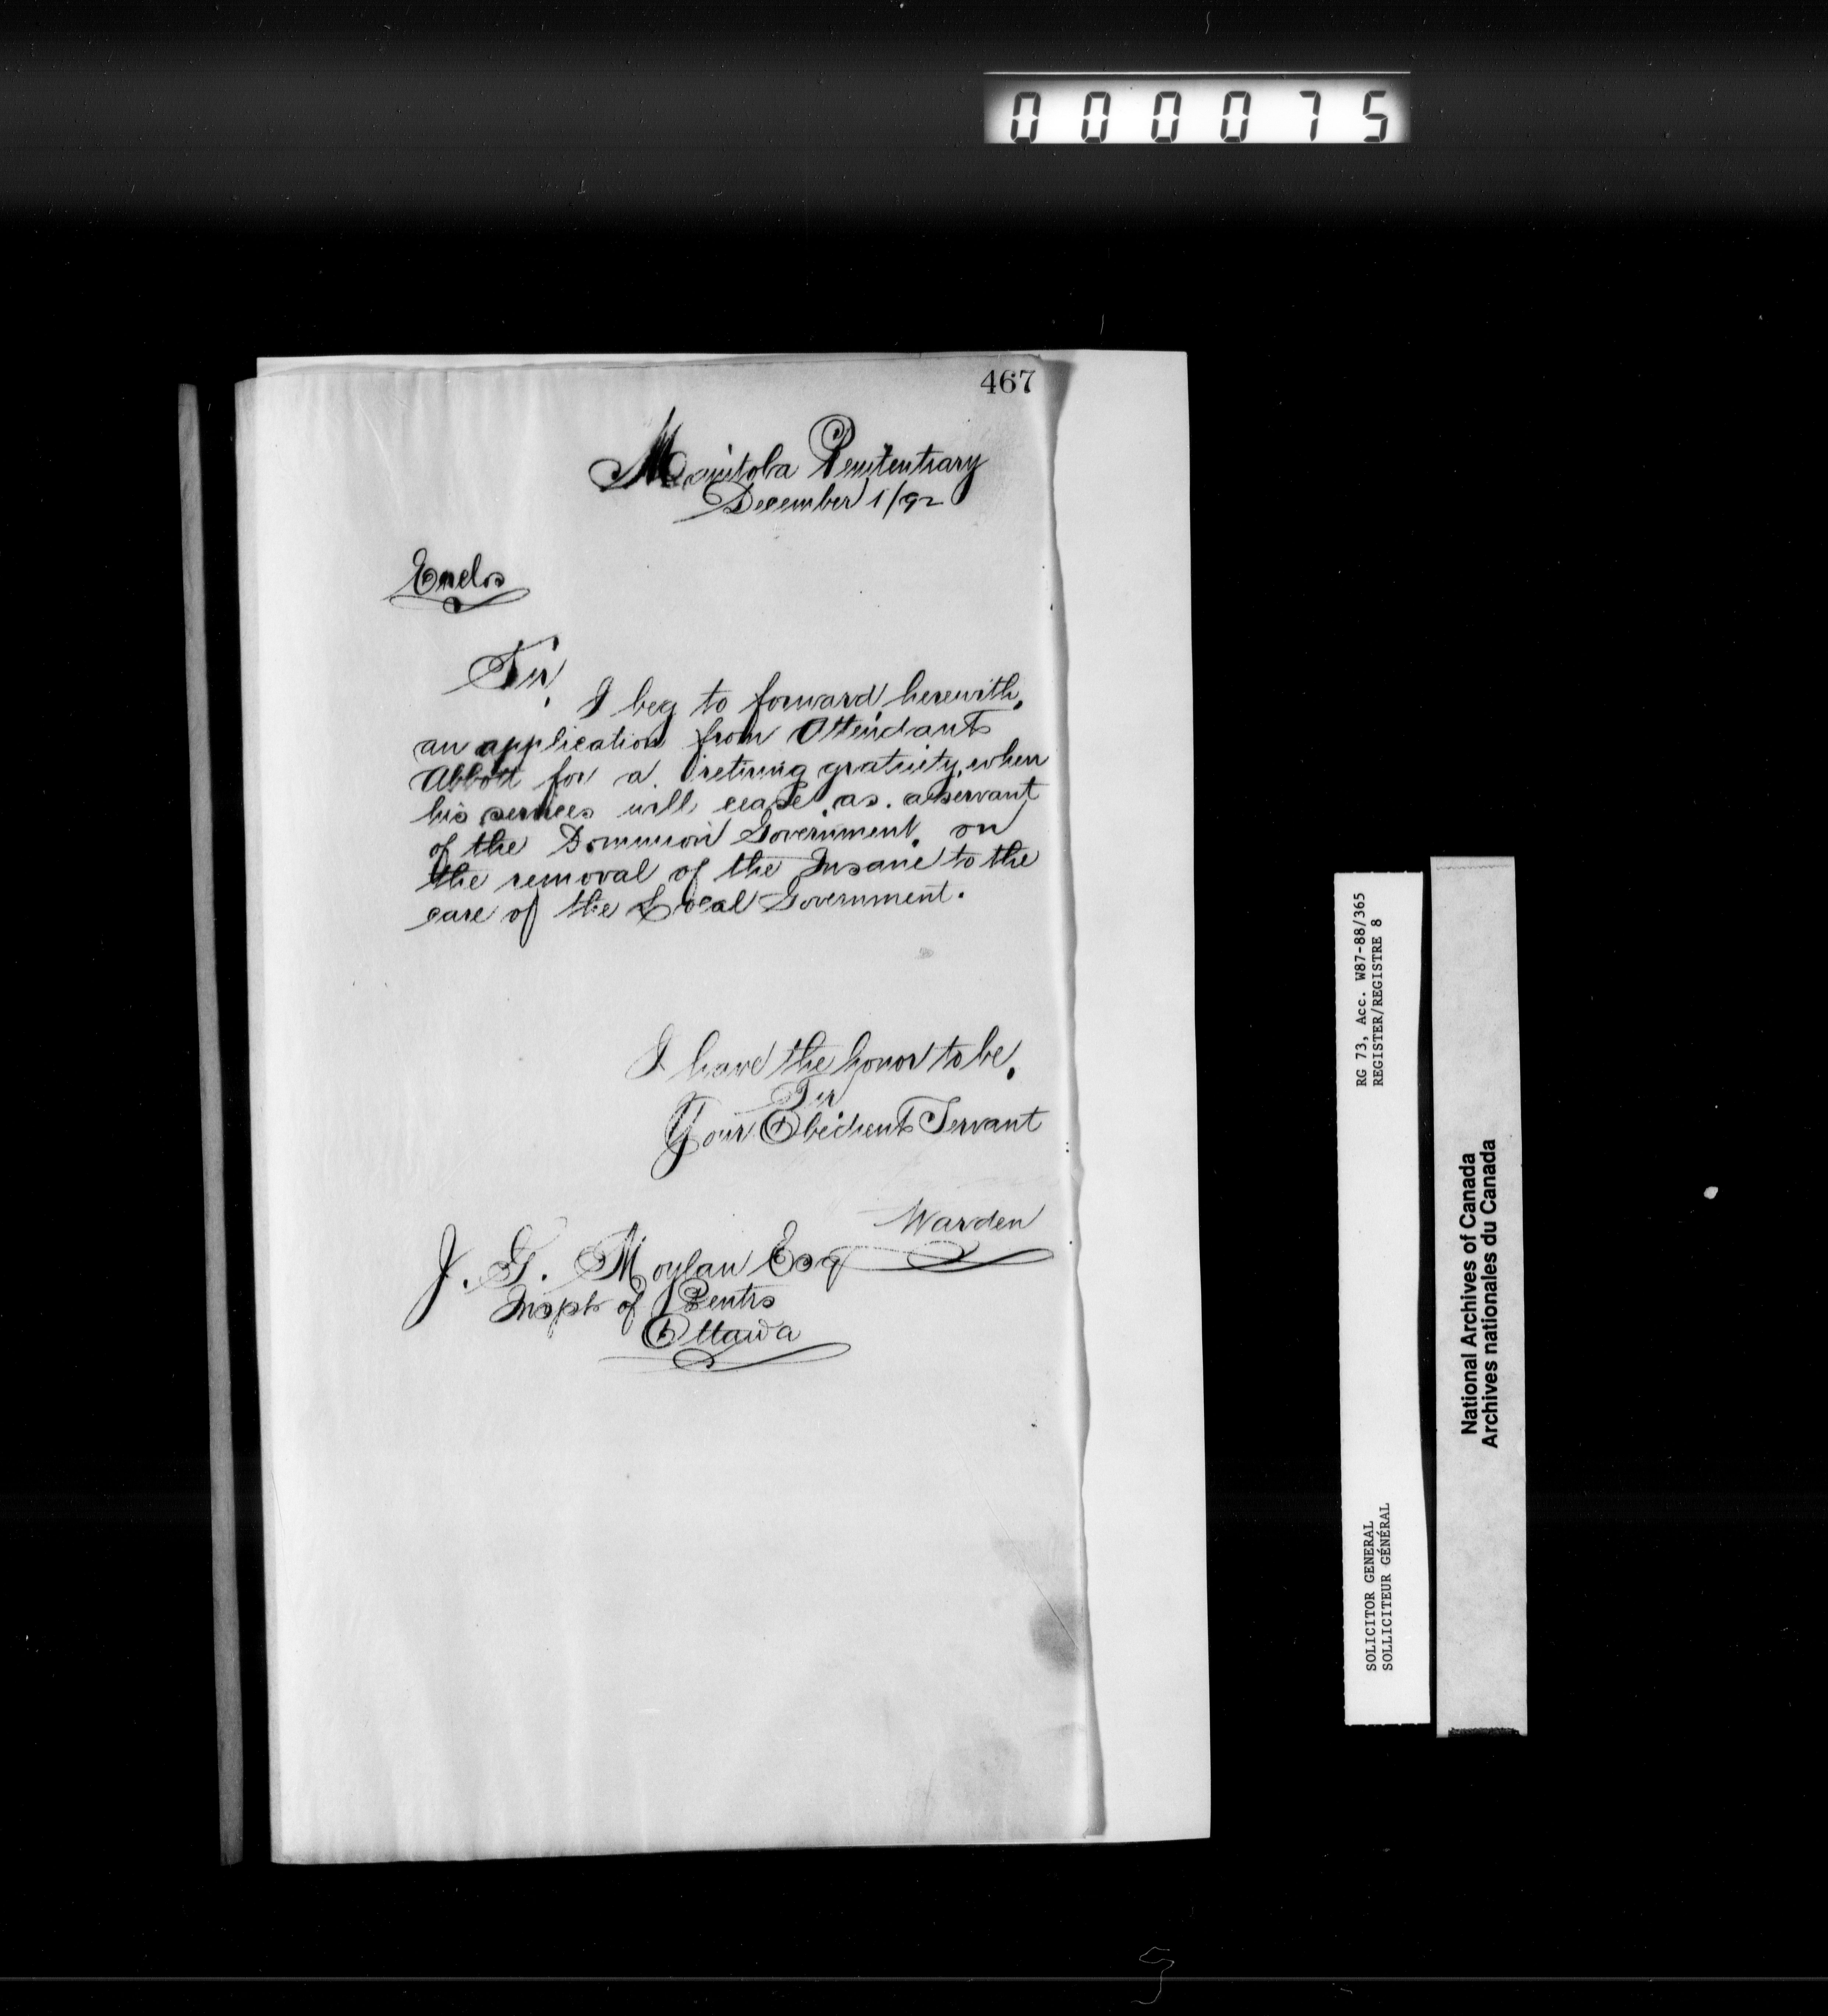 000075
467
Manitoba Penitentiary
December 1/92
Enclos
Sir,
I beg to forward, herewith,
an application from Attendant
Abbott for a retiring gratuity, when
his services will cease, as a servant
of the Dominion Government, on
the removal of the Insane to the
care of the Local Government.
I have the honor to be,
Sir
Your Obedient Servant
Warden
J. G. Moylan Esq
Inspt of Pentrs
Ottawa
RG 73, Acc. W87-88/365
REGISTER/REGISTRE 8
SOLICITOR GENERAL
SOLLICITEUR GÉNÉRAL
National Archives of Canada
Archives nationales du Canada